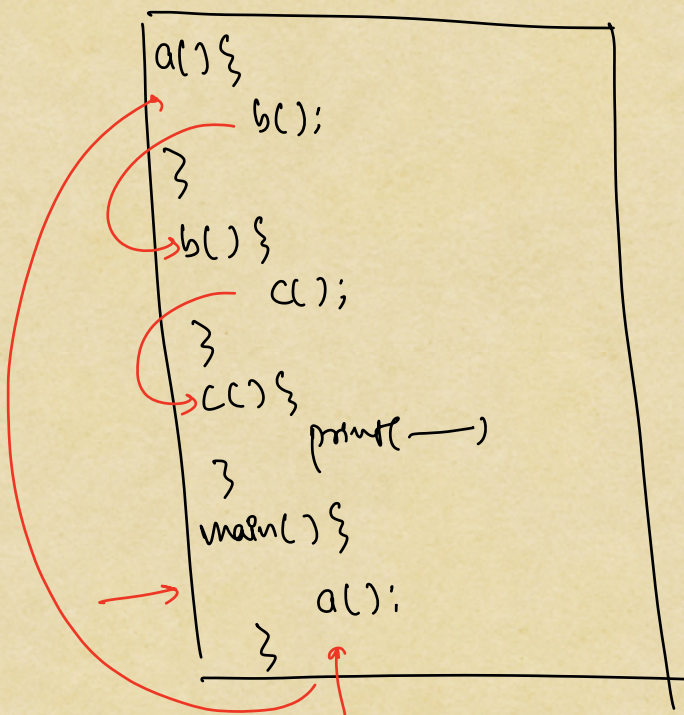 a() {
b();
}
b() {
c();
}
c() {
print( — )
}
main() {
a();
}